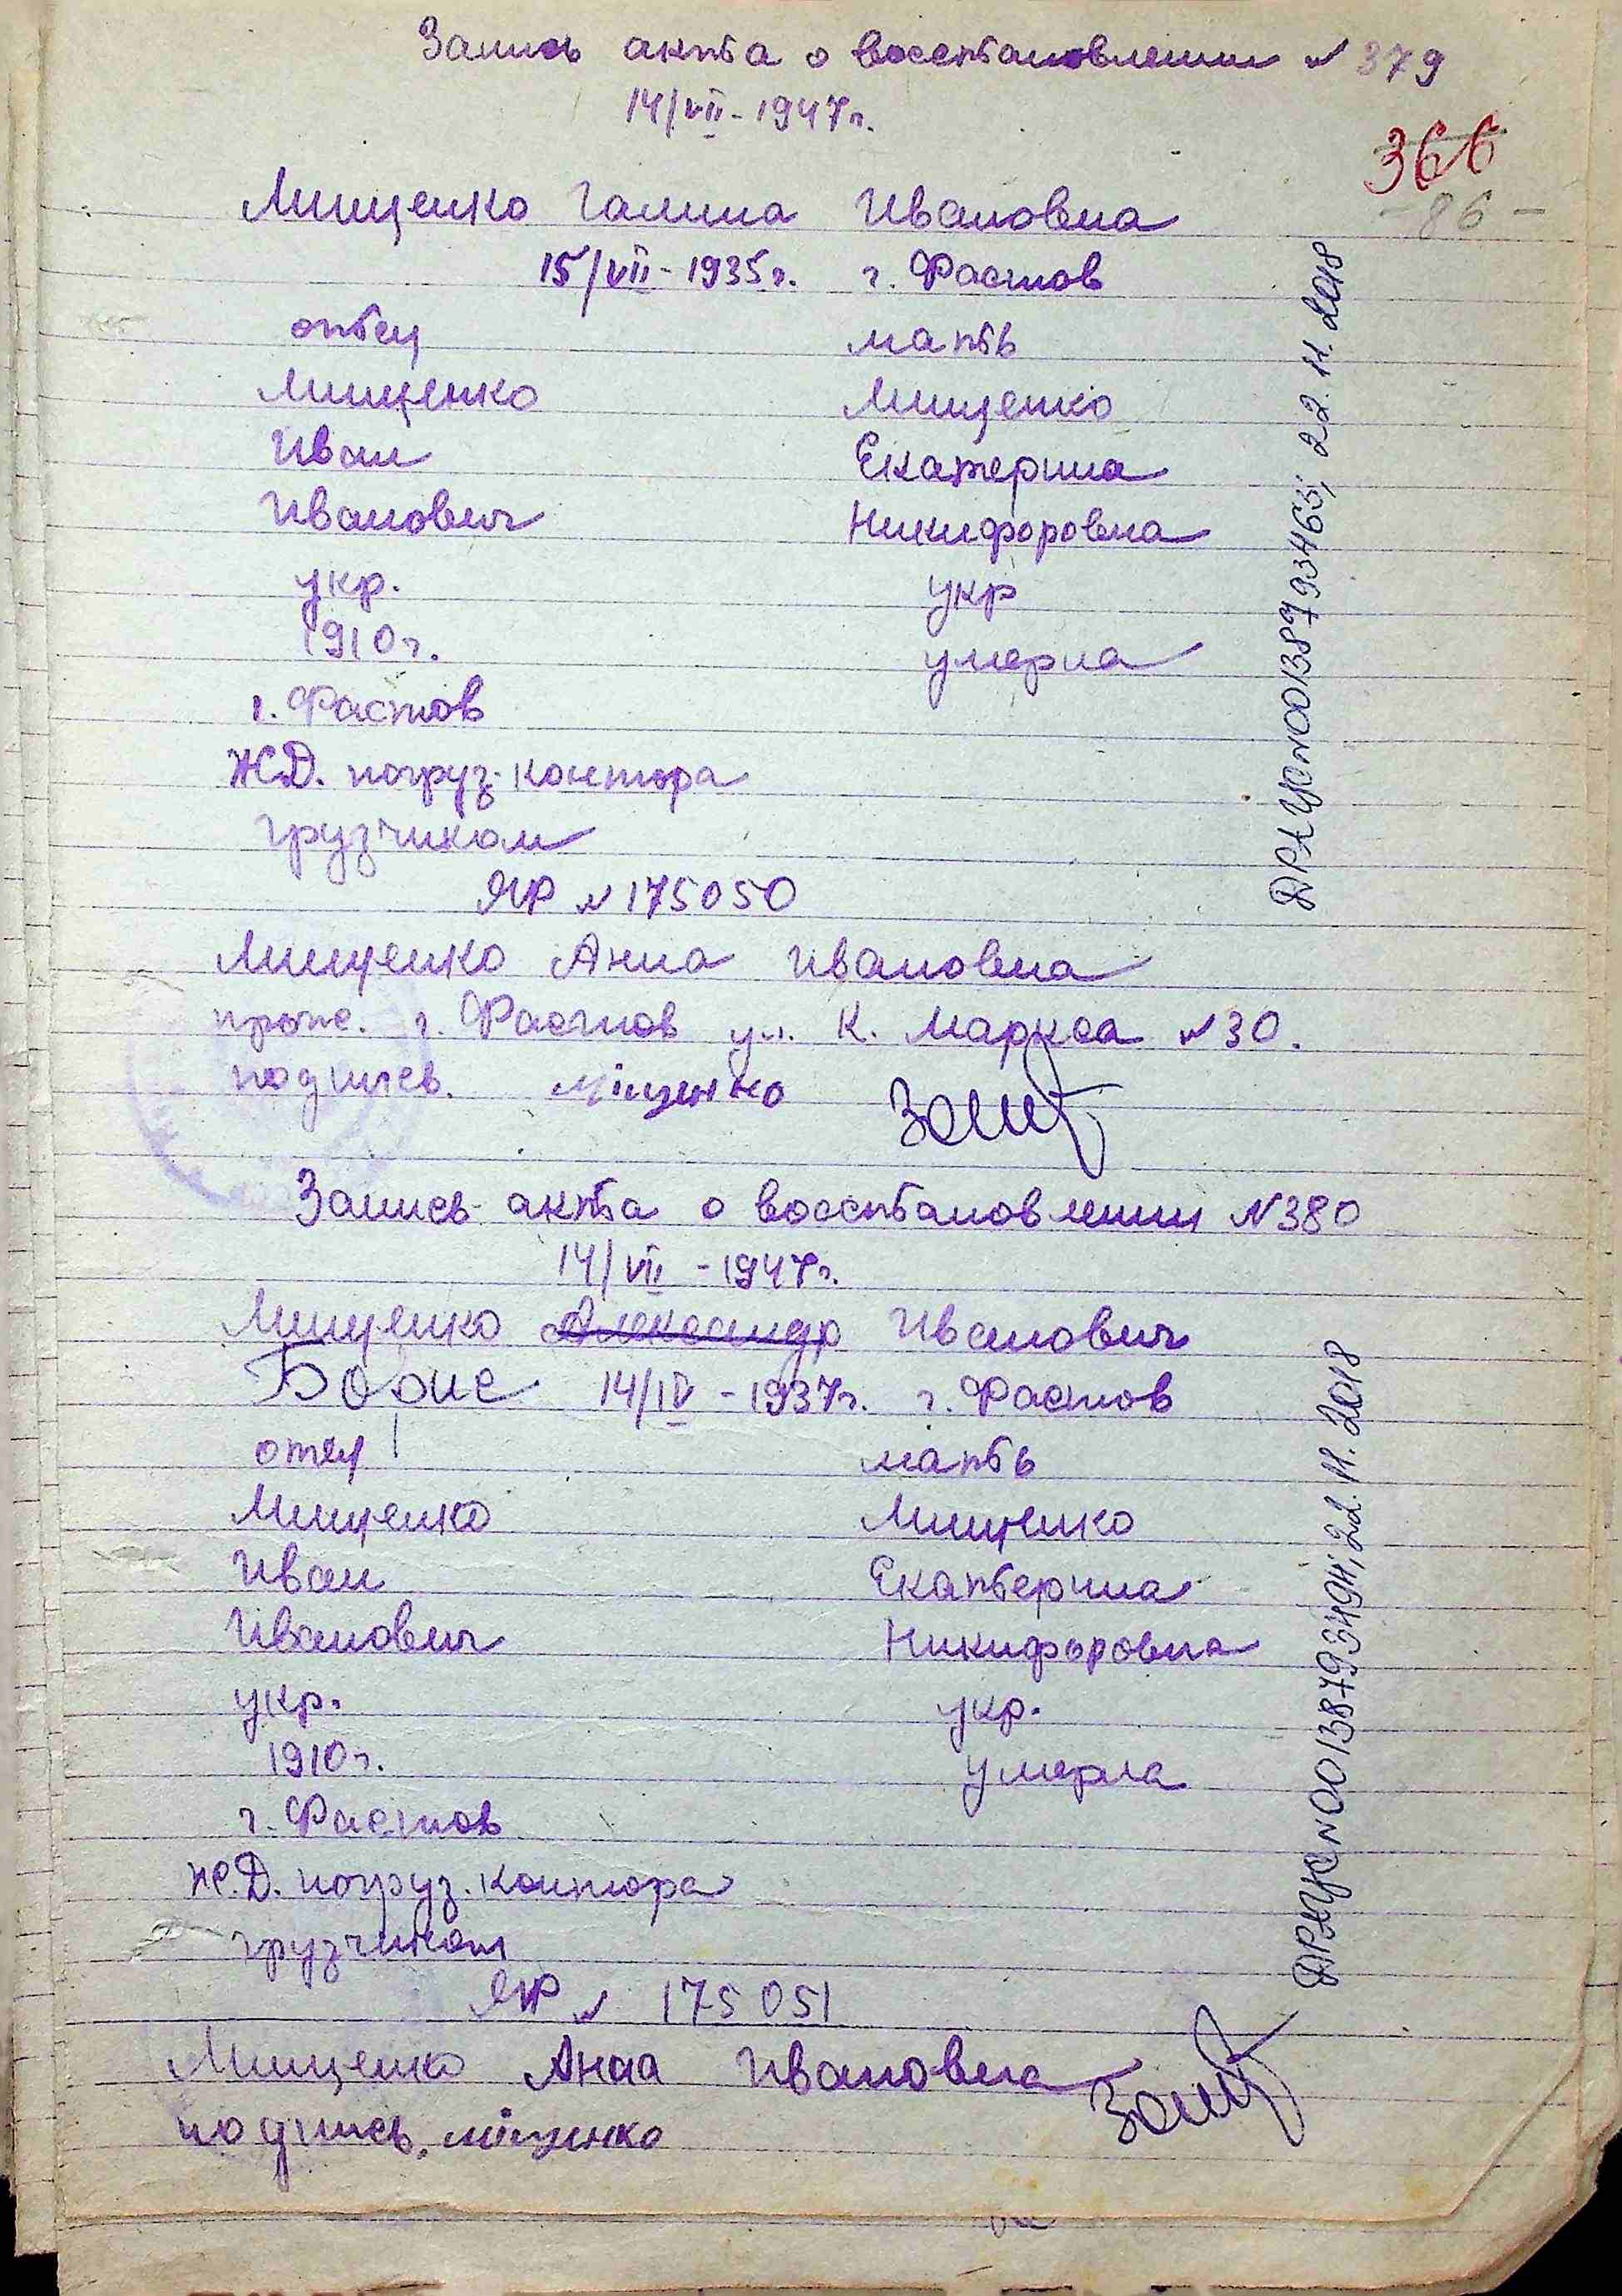 Запись акта о восстановлении № 379
14/VII - 1947г.
366
- 86 -
Мищенко Галина Ивановна
15/VII - 1935г. г. Фастов
отец мать
Мищенко Мищенко
Иван Екатерина
Иванович Никифоровна
укр. укр
1910г. умерла
г. Фастов
ЖД. погруз. контора
грузчиком
ЯР № 175050
Мищенко Анна Ивановна
прож. г. Фастов ул. К. Маркса № 30.
подпись. Міщенко
Запись акта о восстановлении № 380
14/VII - 1947г.
Мищенко Александр Иванович
Борис 14/IV - 1937г. г. Фастов
отец мать
Мищенко Мищенко
Иван Екатерина
Иванович Никифоровна
укр. укр.
1910г. умерла
г. Фастов
Ж.Д. погруз. контора
грузчиком
ЯР № 175051
Мищенко Анна Ивановна
подпись. Міщенко
ДРАЦС № 00138793463; 22.11.2018
ДРАЦС № 00138793494; 22.11.2018